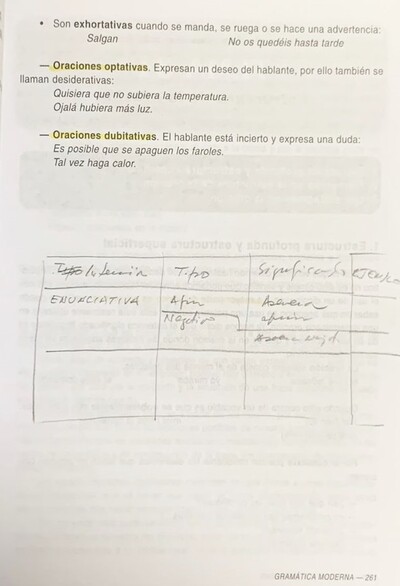 • Son exhortativas cuando se manda, se ruega o se hace una advertencia:
Salgan No os quedéis hasta tarde
— Oraciones optativas. Expresan un deseo del hablante, por ello también se
llaman desiderativas:
Quisiera que no subiera la temperatura.
Ojalá hubiera más luz.
— Oraciones dubitativas. El hablante está incierto y expresa una duda:
Es posible que se apaguen los faroles.
Tal vez haga calor.
1. Estructura profunda y estructura superficial
Tipo Significado
ENUNCIATIVA Afir
Negativo
GRAMÁTICA MODERNA — 261